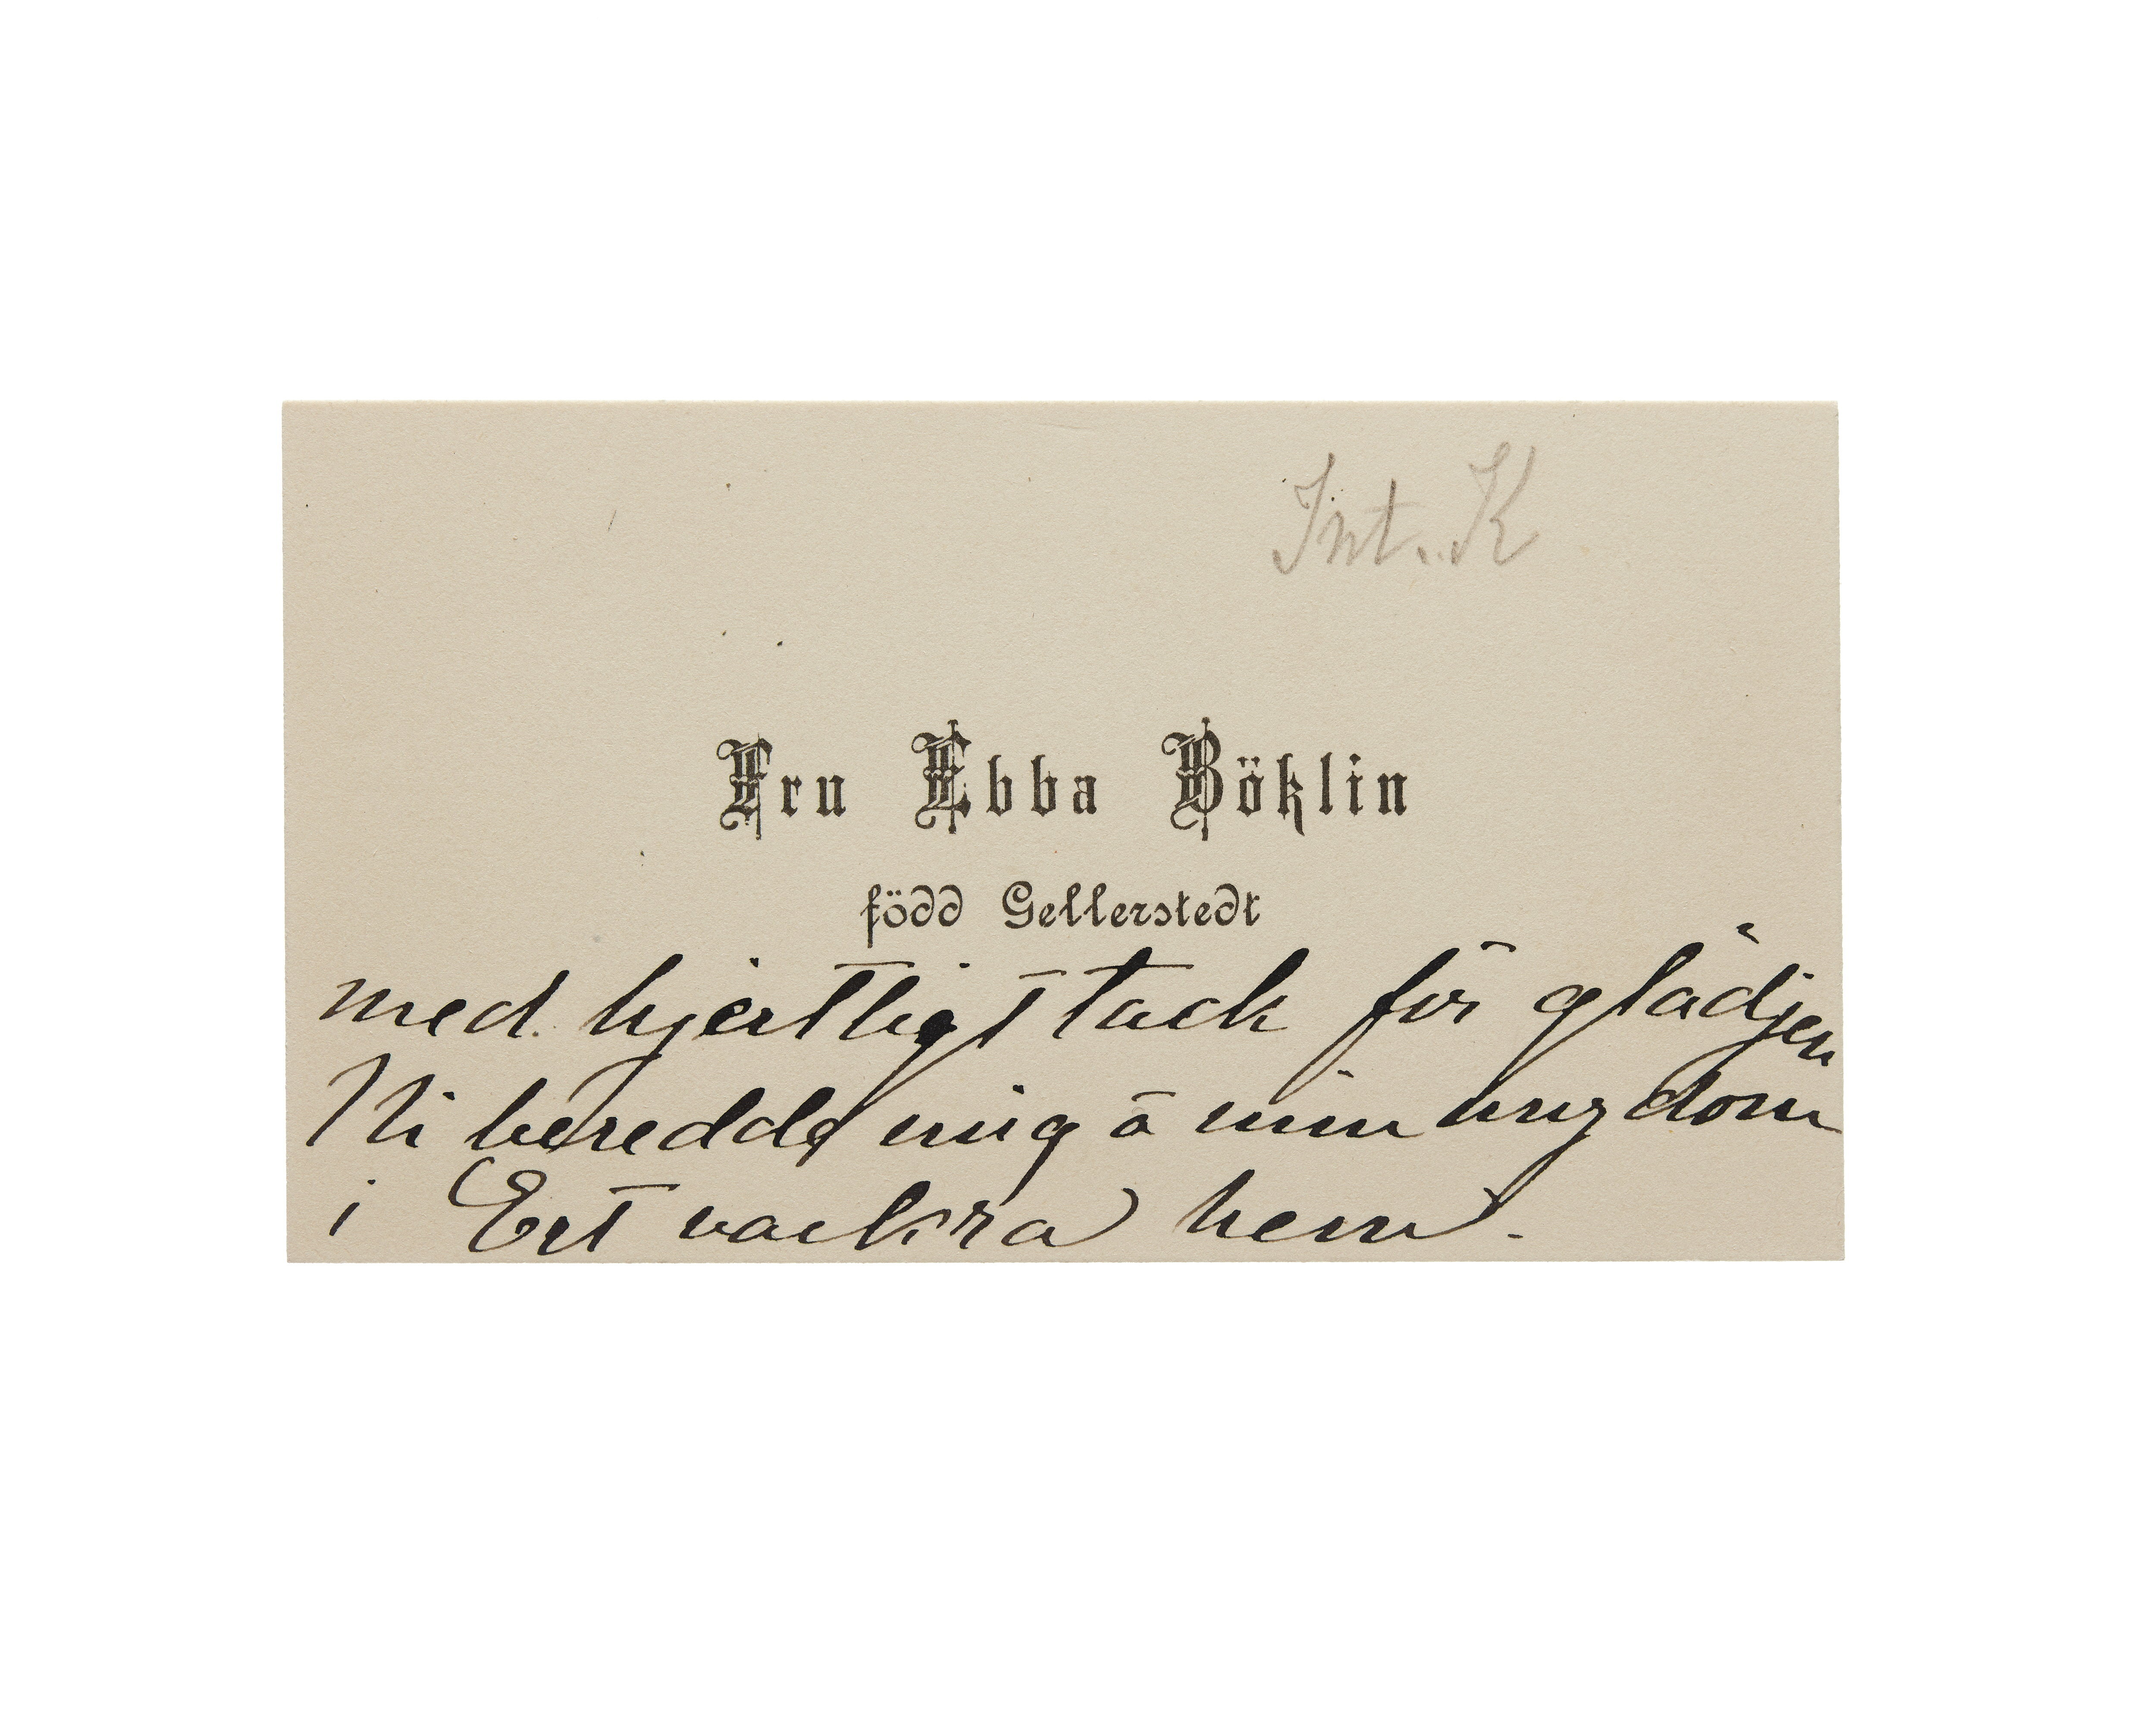 Int. K
Fru Ebba Böklin
född Gellerstedt
med hjertligt tack för glädjen
Ni beredde mig å min ungdom
i Ert vackra hem.